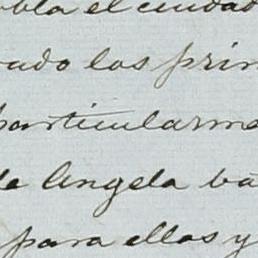 el ciudad
ado los prin
particularme
de Angela ba
para ellas y